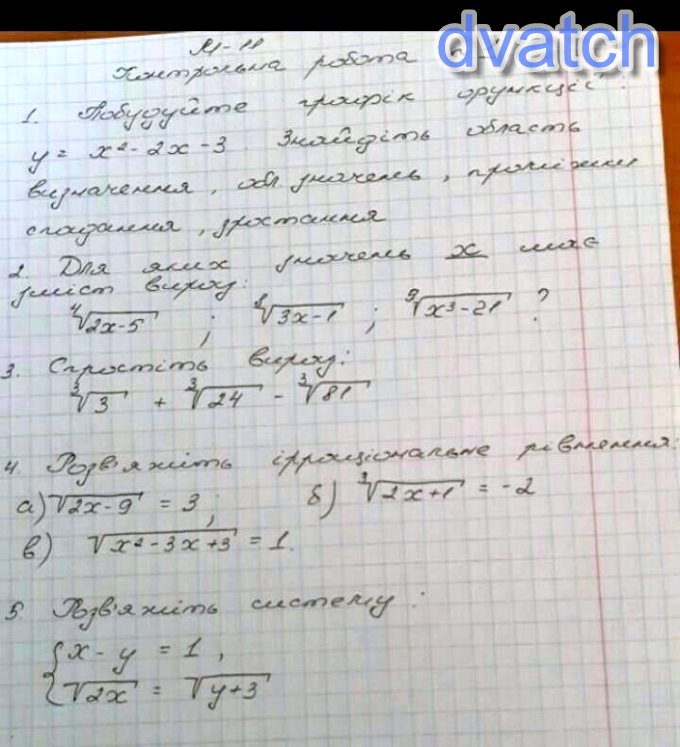 dvatch
М-11
Контрольна робота
1. Побудуйте графік функції :
y = x² - 2x - 3. Знайдіть область
визначення, обл. значень, проміжки
спадання, зростання
2. Для яких значень x має
зміст вираз:
⁴√2x-5 ; √3x-1 ; ⁹√x³-21 ?
3. Спростіть вираз:
³√3 + ³√24 - ³√81
4. Розв'яжіть ірраціональне рівняння:
а) √2x-9 = 3 ; б) ³√2x+1 = -2
в) √x²-3x+3 = 1.
5. Розв'яжіть систему :
{ x - y = 1 ,
√2x = √y+3